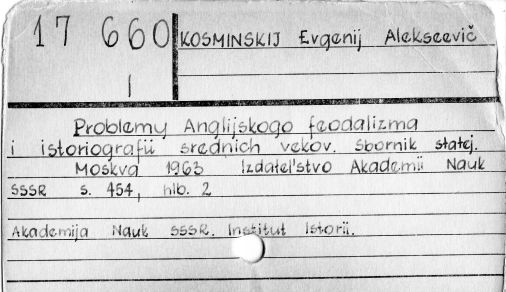 17 660 KOSMINSKIJ Evgenij Alekseevič
1
Problemy Anglijskogo feodalizma
i istoriografii srednich vekov. Sbornik statej.
Moskva 1963 Izdatel'stvo Akademii Nauk
SSSR s. 454, hlb. 2
Akademija Nauk SSSR. Institut Istorii.